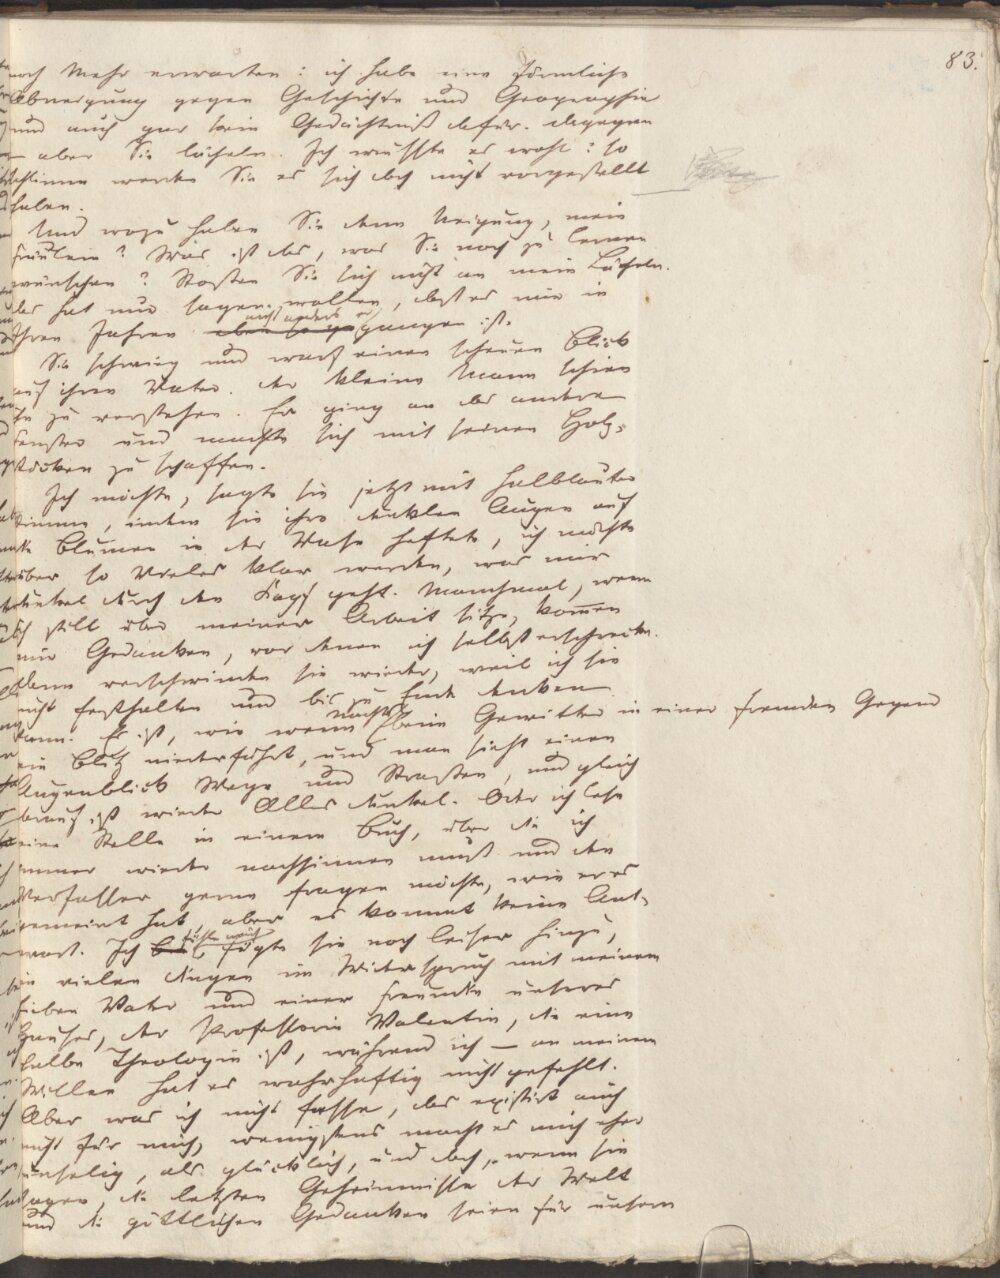 83.
noch Mehr erwarten: ich habe eine förmliche
Abneigung gegen Geschichte und Geographie
und auch gar kein Gedächtniß dafür. dagegen
– aber Sie lächeln. Ich wußte es wohl: so
schlimm werden Sie es sich doch nicht vorgestellt
haben.
Und wozu haben Sie denn Neigung, mein
Fräulein? Was ist das, was Sie noch zu lernen
wünschen? Stoßen Sie sich nicht an mein Lächeln.
das hat nur sagen wollen, daß es mir in
nicht anders er
Ihren Jahren gangen ist.
Sie schwieg und warf einen scheuen Blick
auf ihren Vater. der kleine Mann schien
sie zu verstehen. Er ging an das andere
Fenster und machte sich mit seinen Holz-
stöcken zu schaffen.
Ich möchte, sagte sie jetzt mit halblauter
Stimme, indem sie ihre dunklen Augen auf
die Blumen in der Vase heftete, ich möchte
über so Vieles klar werden, was mir
dunkel durch den Kopf geht. Manchmal, wenn
ich still über meiner Arbeit sitze, kommen
mir Gedanken, vor denen ich selbst erschrecke.
dann verschwinden sie wieder, weil ich sie
nicht festhalten und bis zu Ende denken
kann. Es ist, wie wenn Nachts beim Gewitter in einer fremden Gegend
ein Blitz niederfährt, und man sieht einen
Augenblick Wege und Straßen, und gleich
darauf ist wieder Alles dunkel. Oder ich lese
eine Stelle in einem Buch, über die ich
immer wieder nachsinnen muß und den
Verfasser gerne fragen möchte, wie er es
gemeint hat, aber es kommt keine Ant-
fühle mich
wort. Ich fügte sie noch leiser hinzu,
in vielen dingen im Widerspruch mit meinem
lieben Vater und einer Freundin unseres
Hauses, der Professorin Valentin, die eine
halbe Theologin ist, während ich – an meinem
Willen hat es wahrhaftig nicht gefehlt.
Aber was ich nicht fasse, das existirt auch
nicht für mich, wenigstens macht es mich eher
unselig, als glücklich, und doch, wenn sie
sagen, die letzten Geheimnisse der Welt
und die göttlichen Gedanken seien für unsern